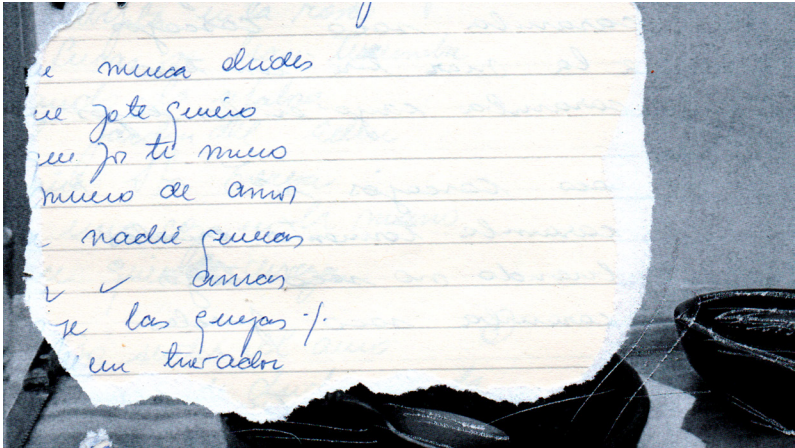 e nunca olvides
ue yo te quiero
ue por ti muero
muero de amor
nadie quieras
✓ ✓ amas
je las quejas ·/.
un trovador